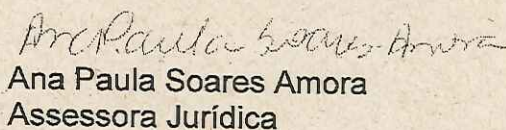 Ana Paula Soares Amora
Ana Paula Soares Amora
Assessora Jurídica